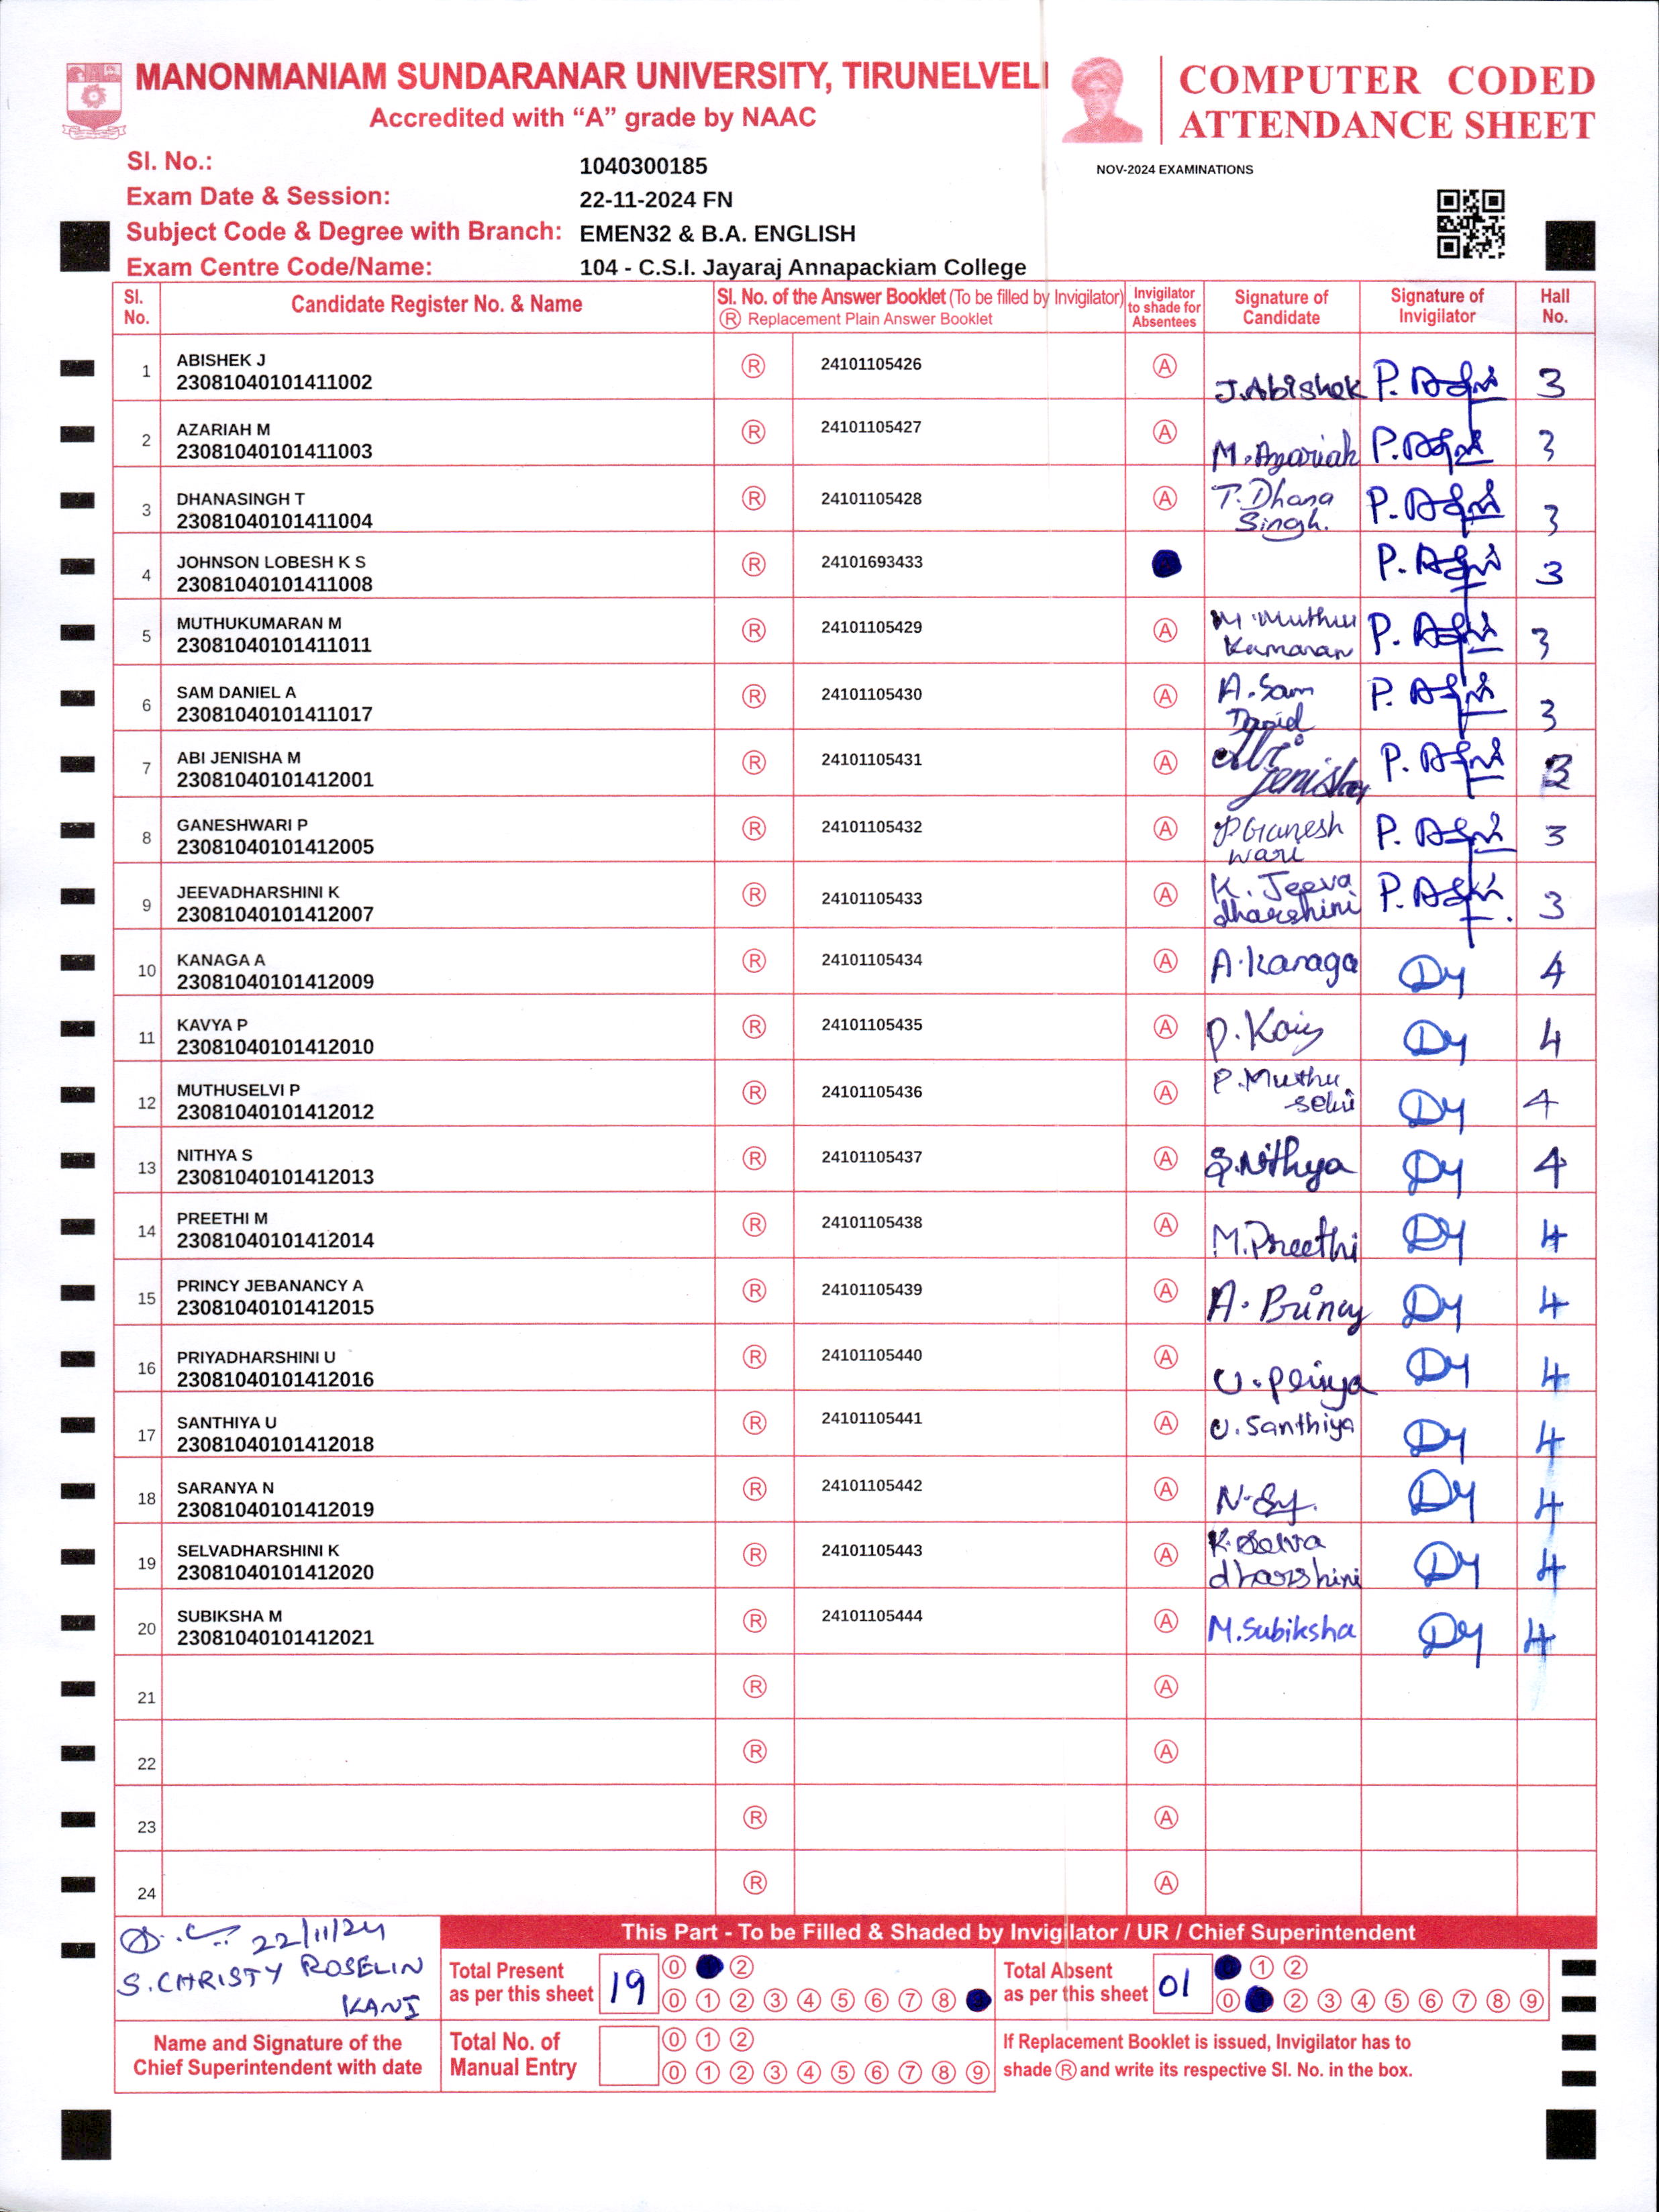 MANONMANIAM SUNDARANAR UNIVERSITY, TIRUNELVELI
Accredited with “A” grade by NAAC
COMPUTER CODED
ATTENDANCE SHEET
Sl. No.: 1040300185
NOV-2024 EXAMINATIONS
Exam Date & Session: 22-11-2024 FN
Subject Code & Degree with Branch: EMEN32 & B.A. ENGLISH
Exam Centre Code/Name: 104 - C.S.I. Jayaraj Annapackiam College
Sl. No. Candidate Register No. & Name Sl. No. of the Answer Booklet (To be filled by Invigilator) Ⓡ Replacement Plain Answer Booklet Invigilator to shade for Absentees Signature of Candidate Signature of Invigilator Hall No.
1 ABISHEK J Ⓡ 24101105426 Ⓐ J.Abishek 3
23081040101411002
2 AZARIAH M Ⓡ 24101105427 Ⓐ M.Azariah 3
23081040101411003
3 DHANASINGH T Ⓡ 24101105428 Ⓐ T.Dhana Singh. 3
23081040101411004
4 JOHNSON LOBESH K S Ⓡ 24101693433 3
23081040101411008
5 MUTHUKUMARAN M Ⓡ 24101105429 Ⓐ M.Muthu Kumaran 3
23081040101411011
6 SAM DANIEL A Ⓡ 24101105430 Ⓐ A.Sam 3
23081040101411017
7 ABI JENISHA M Ⓡ 24101105431 Ⓐ Abi Jenisha 3
23081040101412001
8 GANESHWARI P Ⓡ 24101105432 Ⓐ P Ganesh wari 3
23081040101412005
9 JEEVADHARSHINI K Ⓡ 24101105433 Ⓐ K. Jeeva dharshini 3
23081040101412007
10 KANAGA A Ⓡ 24101105434 Ⓐ A.Kanaga Dy 4
23081040101412009
11 KAVYA P Ⓡ 24101105435 Ⓐ Dy 4
23081040101412010
12 MUTHUSELVI P Ⓡ 24101105436 Ⓐ P.Muthu selvi Dy 4
23081040101412012
13 NITHYA S Ⓡ 24101105437 Ⓐ S.Nithya Dy 4
23081040101412013
14 PREETHI M Ⓡ 24101105438 Ⓐ M.Preethi Dy 4
23081040101412014
15 PRINCY JEBANANCY A Ⓡ 24101105439 Ⓐ A. Princy Dy 4
23081040101412015
16 PRIYADHARSHINI U Ⓡ 24101105440 Ⓐ U.Priya Dy 4
23081040101412016
17 SANTHIYA U Ⓡ 24101105441 Ⓐ U.Santhiya Dy 4
23081040101412018
18 SARANYA N Ⓡ 24101105442 Ⓐ Dy 4
23081040101412019
19 SELVADHARSHINI K Ⓡ 24101105443 Ⓐ K.Selva dharshini Dy 4
23081040101412020
20 SUBIKSHA M Ⓡ 24101105444 Ⓐ M.Subiksha Dy 4
23081040101412021
21 Ⓡ Ⓐ
22 Ⓡ Ⓐ
23 Ⓡ Ⓐ
24 Ⓡ Ⓐ
22/11/24
S.CHRISTY ROSELIN
KANI
Name and Signature of the
Chief Superintendent with date
This Part - To be Filled & Shaded by Invigilator / UR / Chief Superintendent
Total Present as per this sheet 19 ⓪ ②
⓪ ① ② ③ ④ ⑤ ⑥ ⑦ ⑧
Total Absent as per this sheet 01 ① ②
⓪ ② ③ ④ ⑤ ⑥ ⑦ ⑧ ⑨
Total No. of Manual Entry ⓪ ① ②
⓪ ① ② ③ ④ ⑤ ⑥ ⑦ ⑧ ⑨
If Replacement Booklet is issued, Invigilator has to
shade Ⓡ and write its respective Sl. No. in the box.